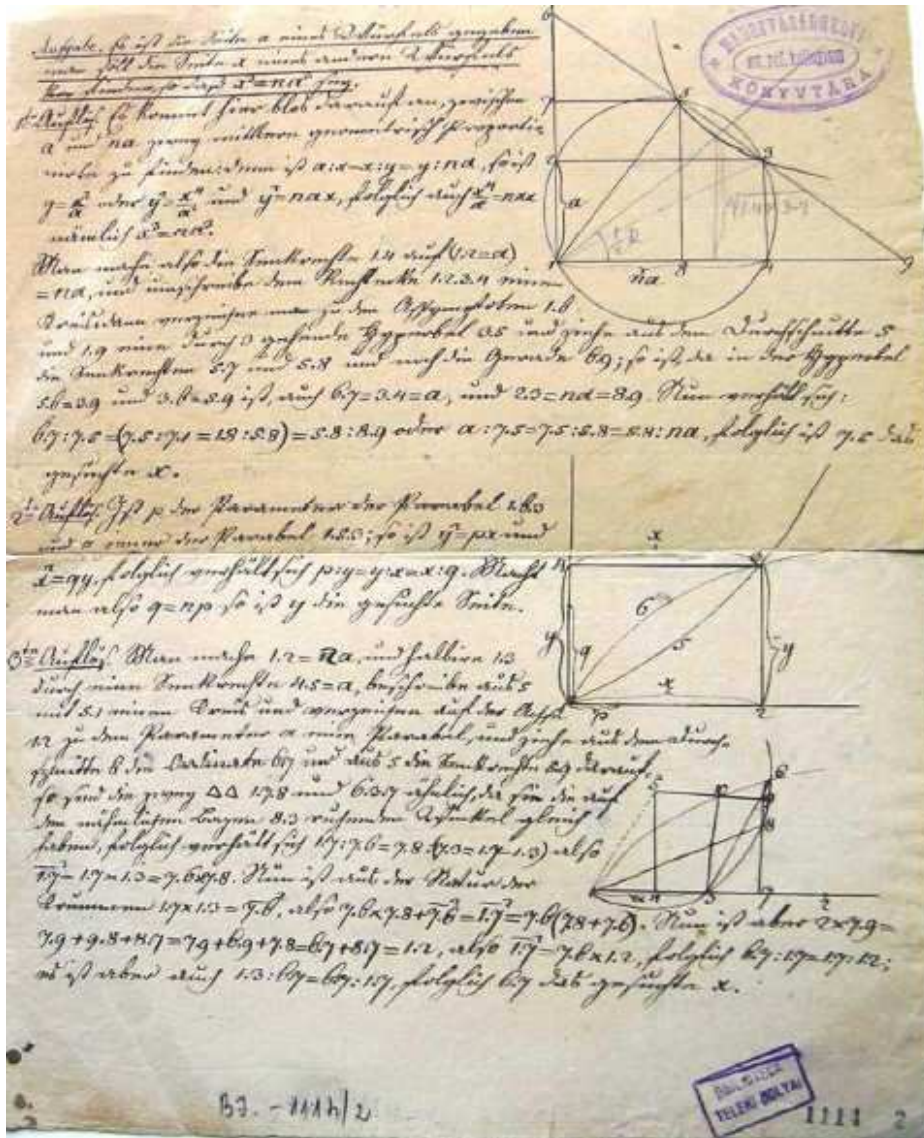 Aufgabe. Es ist die Seite a eines Würfels gegeben
man soll die Seite x eines andern Würfels
finden, so daß x³=na³ sey.
1te Auflös. Es kommt hier blos darauf an, zwischen
a und na zwey mittlere geometrisch Proporti-
zu finden: denn ist a:x=x:y=y:na, so ist
y=x²/a oder y²=x⁴/a² und y²=nax, folglich auch x⁴/a²=nax
nämlich x³=na³.
Man mache also die Senkrechte 1.4 auf (1.2=a)
=na, und umschreibe dem Rechtecke 1.2.3.4 einen
Kreis dann verzeichne man zu den Assymptoten 1.6
und 1.9 eine durch 3 gehende Hyperbel 3.5 und ziehe aus dem Durchschnitte 5
die Senkrechten 5.7 und 5.8 und noch die Gerade 69; so ist, da in der Hyperbel
5.6=3.9 und 3.6=5.9 ist, auch 6.7=3.4=a, und 2.3=na=8.9. Nun verhält sich:
6.7:7.5=(7.5:7.1=1.8:5.8)=5.8:8.9 oder a:7.5=7.5:5.8=5.8:na, folglich ist 7.5 das
gesuchte x.
2te Auflös. Ist p der Parameter der Parabel 1.6.3
und q jener der Parabel 1.5.3; so ist y²=px und
x²=qy, folglich verhält sich p:y=y:x=x:q. Macht
man also q=np so ist y die gesuchte Seite.
3te Auflös. Man mache 1.2=na, und halbire 1.3
durch eine Senkrechte 4.5=a, beschreibe aus 5
mit 5.1 einen Kreis und verzeichne auf der
1.2 zu dem Parameter a eine Parabel, und ziehe aus dem Durch-
schnitte 6 die Ordinate 6.7 und aus 5 die Senkrechte 5.9 darauf,
so sind die zwey ΔΔ 1.7.8 und 6.3.7 ähnlich, da sie die auf
den nähmlichen Bogen 8.3 ruhenden Winkel gleich
haben, folglich verhält sich 1.7:7.6=7.8:(7.3=1.7-1.3) also
1.7²-1.7×1.3=7.6×7.8. Nun ist aus der Natur der
Krummen 1.7×1.3=7.6², also 7.6×7.8+7.6²=1.7²=7.6(7.8+7.6). Nun ist aber 2×7.9=
7.9+9.8+8.7=7.9+6.9+7.8=6.7+8.7=1.2, also 1.7²=7.6×1.2, folglich 6.7:1.7=1.7:1.2;
es ist aber auch 1.3:6.7=6.7:1.7, folglich 6.7 das gesuchte x.
6
7
5
2
3
a
1
8
4
9
na
x
6
5
y
q
y
x
p
2
5
6
9
8
4
3
7
2
KÖNYVTÁRA
BJ. - 1114/2
BIBLIOTECA
TELEKI BOLYAI
1114 2